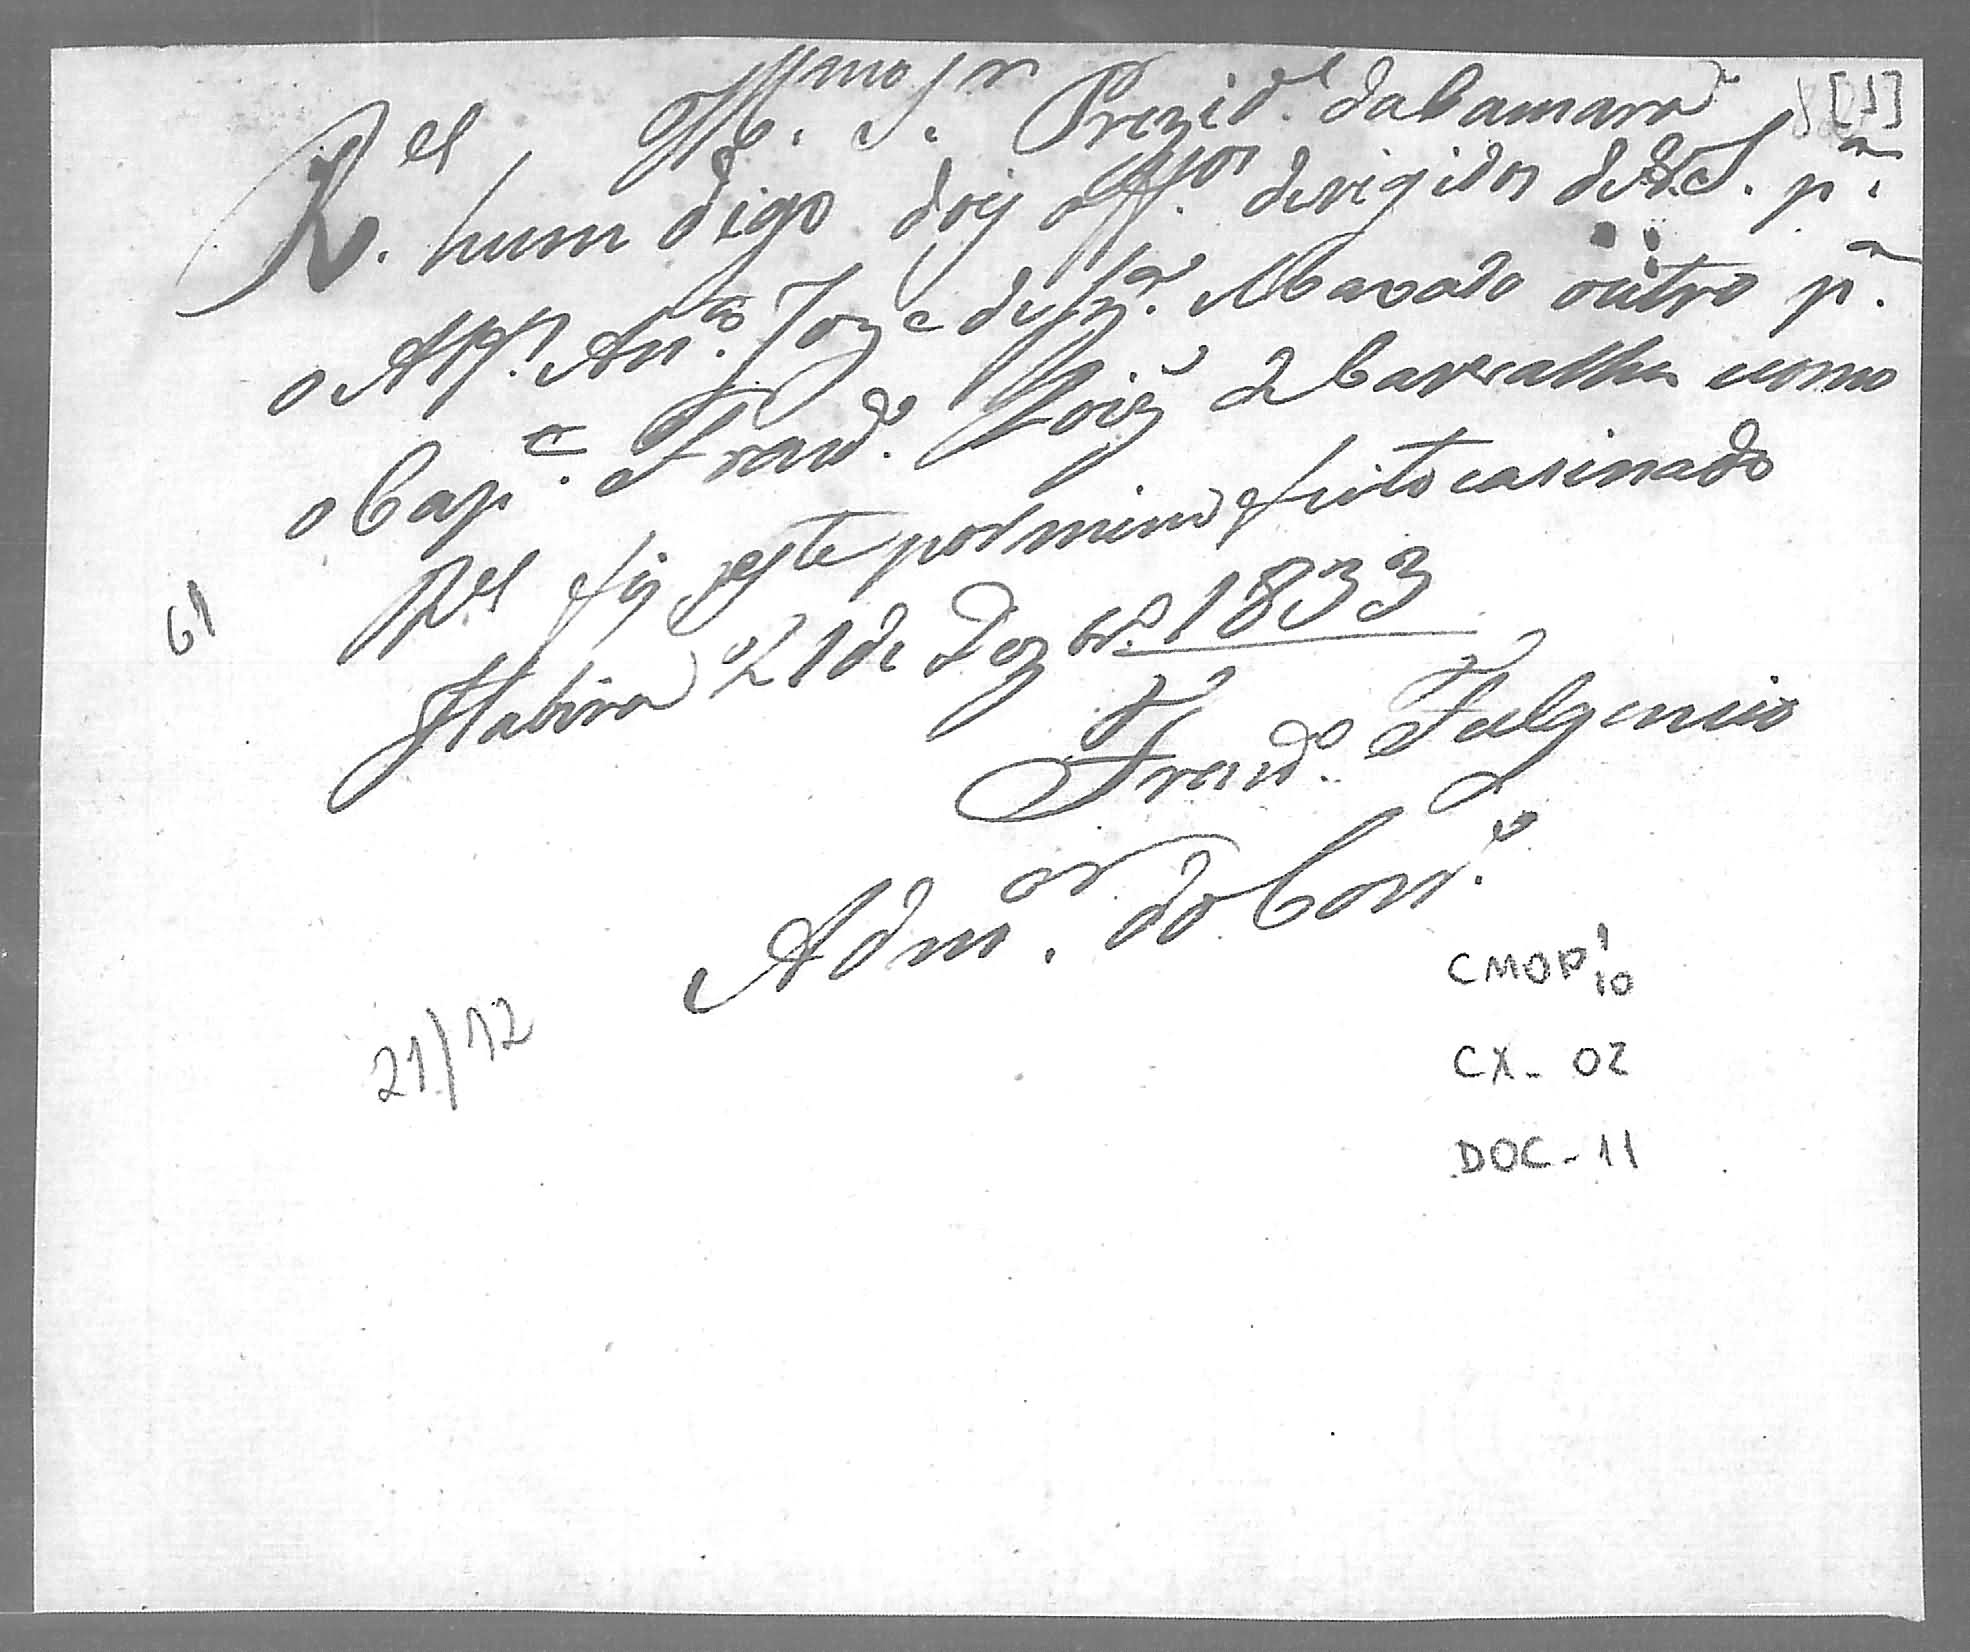 [1]
Illmo. Sr. Prezide. da Camara
R.el hum digo dois offos. derigidos de V.S. pa.
o Alfs. Anto. Joze de Sza. Macado outro pa.
o Capm. Francº. Loiz de Carvalho e como
Rel fis este por mim feito e asinado
Itabira 21 de Dezbrº. 1833
Francº. Fulgencio
Admor. do Corrº.
61
21/12
CMOP 1/10
CX - 02
DOC - 11